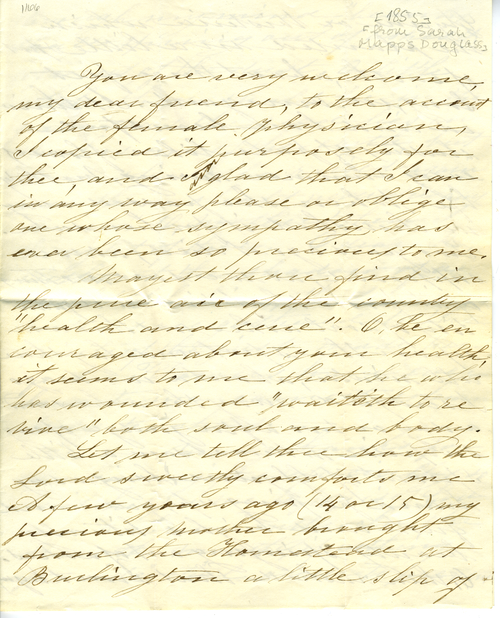 [1855]
[from Sarah
Mapps Douglass]
You are very welcome,
my dear friend, to the account
of the female physician,
I copied it purposely for
thee and am glad that I can
in any way please or oblige
one whose sympathy has
ever been so precious to me.
Mayest thou find in
the pure air of the country
"health and cure". O, be en
couraged about your health,
it seems to me that he who
has wounded "waiteth to re
vive" both soul and body.
Let me tell thee how the
Lord sweetly comforts me
A few years ago (14 or 15) my
precious mother brought
from the Homestead at
Burlington a little slip of